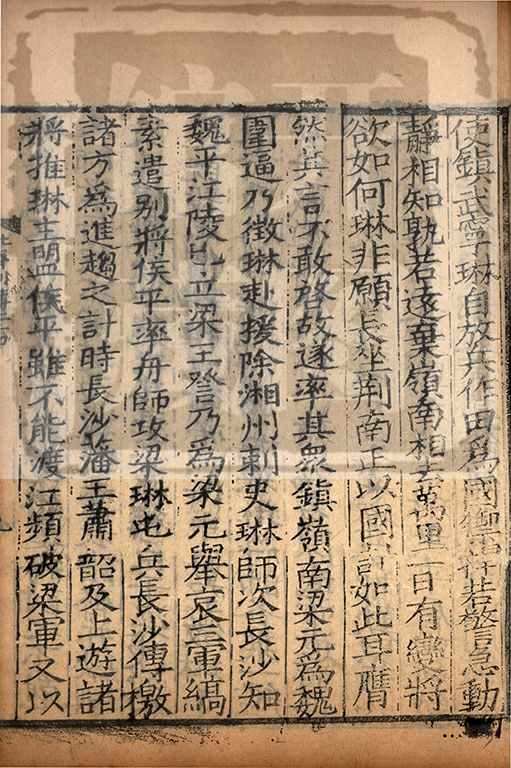 使鎮武寧琳自放兵作田爲國御捍若警急動
靜相知孰若遠棄嶺南相去萬里一日有變將
欲如何琳非願長坐荆南正以國計如此耳膺
然其言不敢啓故遂率其衆鎮嶺南梁元爲魏
圍逼乃徵琳赴援除湘州刺史琳師次長沙知
魏平江陵已立梁王詧乃爲梁元舉哀三軍縞
素遣别將侯平率舟師攻梁琳屯兵長沙傳檄
諸方爲進趨之計時長沙藩王蕭韶及上遊諸
將推琳主盟侯平雖不能渡江頻破梁軍又以